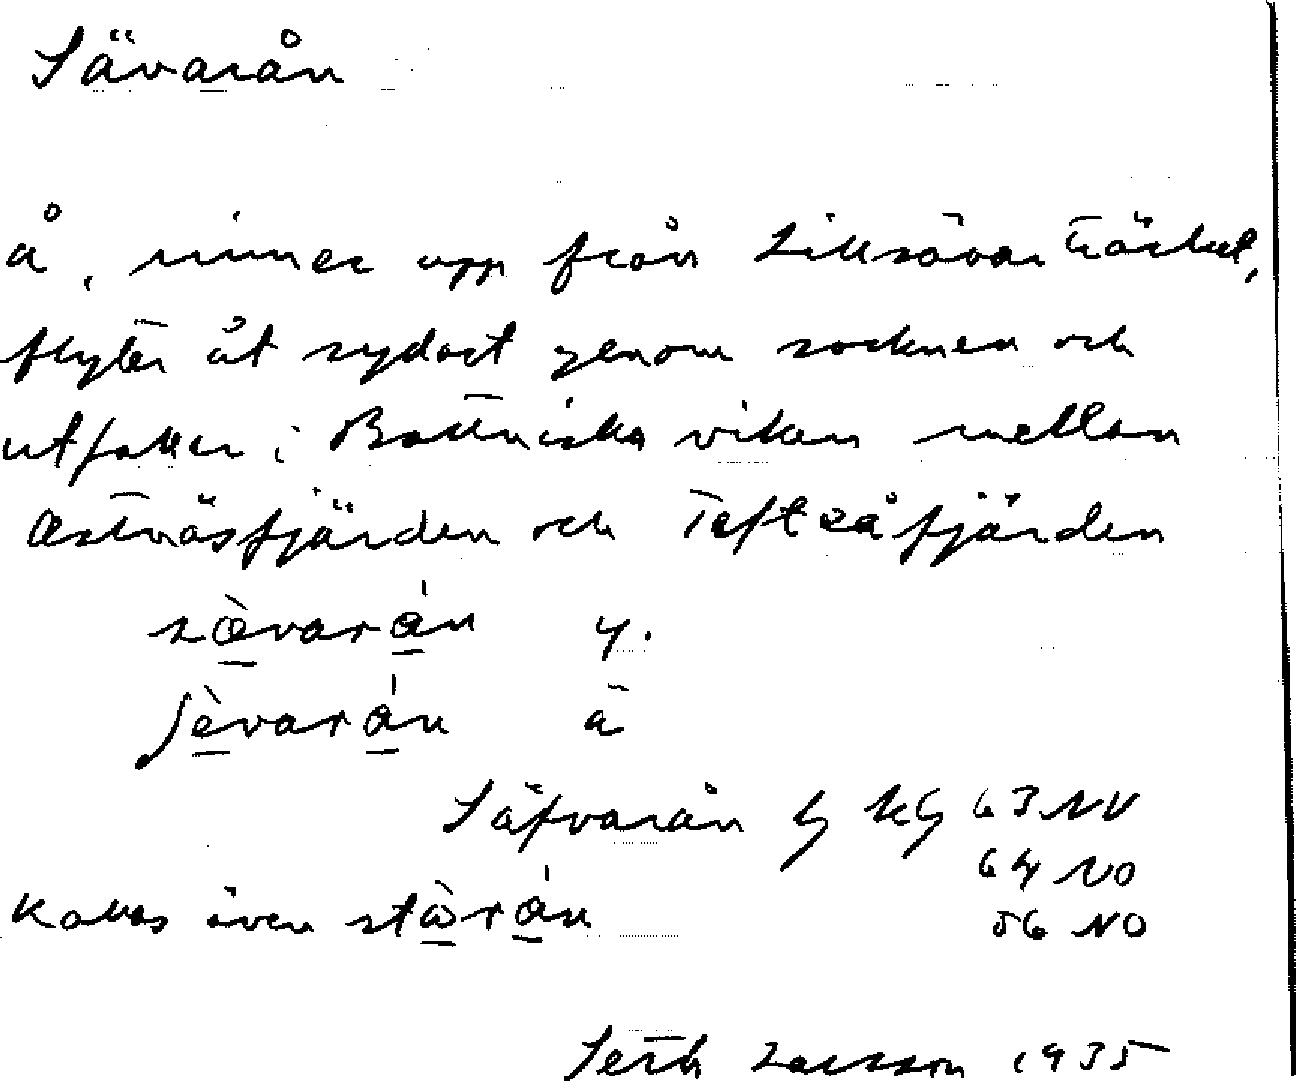 Sävarån
å, rinner upp från Lillsävarträsket,
flyter åt sydost genom socknen och
utfaller i Bottniska viken mellan
Ostnäsfjärden och Tefteåfjärden
sæ̀varán y.
jèvarán ä
Säfvarån G KG 63 NV
64 NO
56 NO
Kallas även stòrán
Seth Larsson 1935